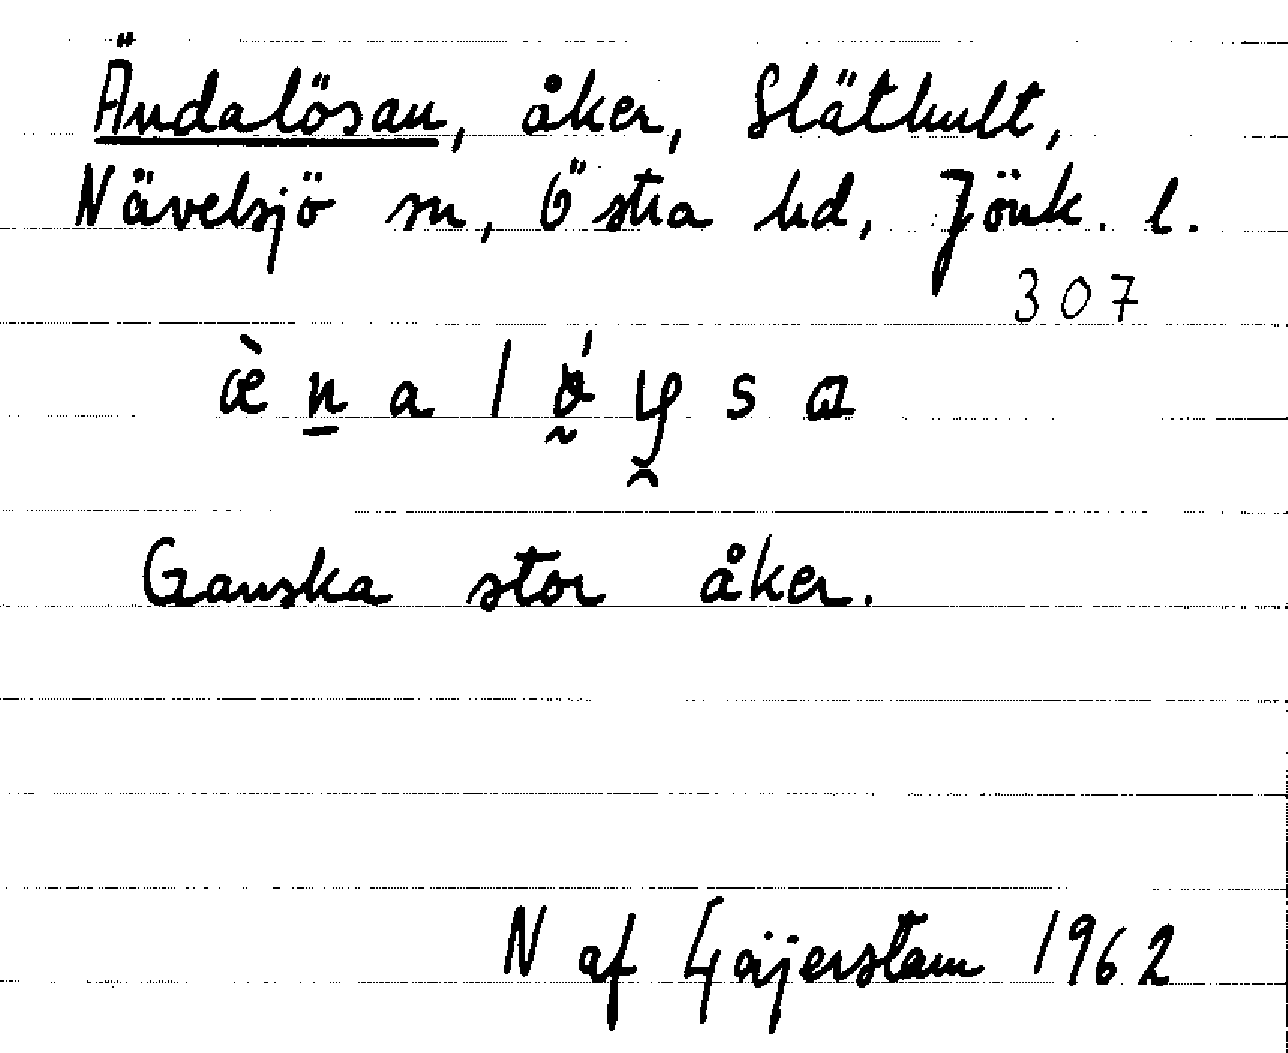 Ändalösan, åker, Släthult,
Nävelsjö sn, Östra hd, Jönk. l.
307
æ̀ n̲ a l ó̰ y̯ s a
Ganska stor åker.
N af Gäijerstam 1962